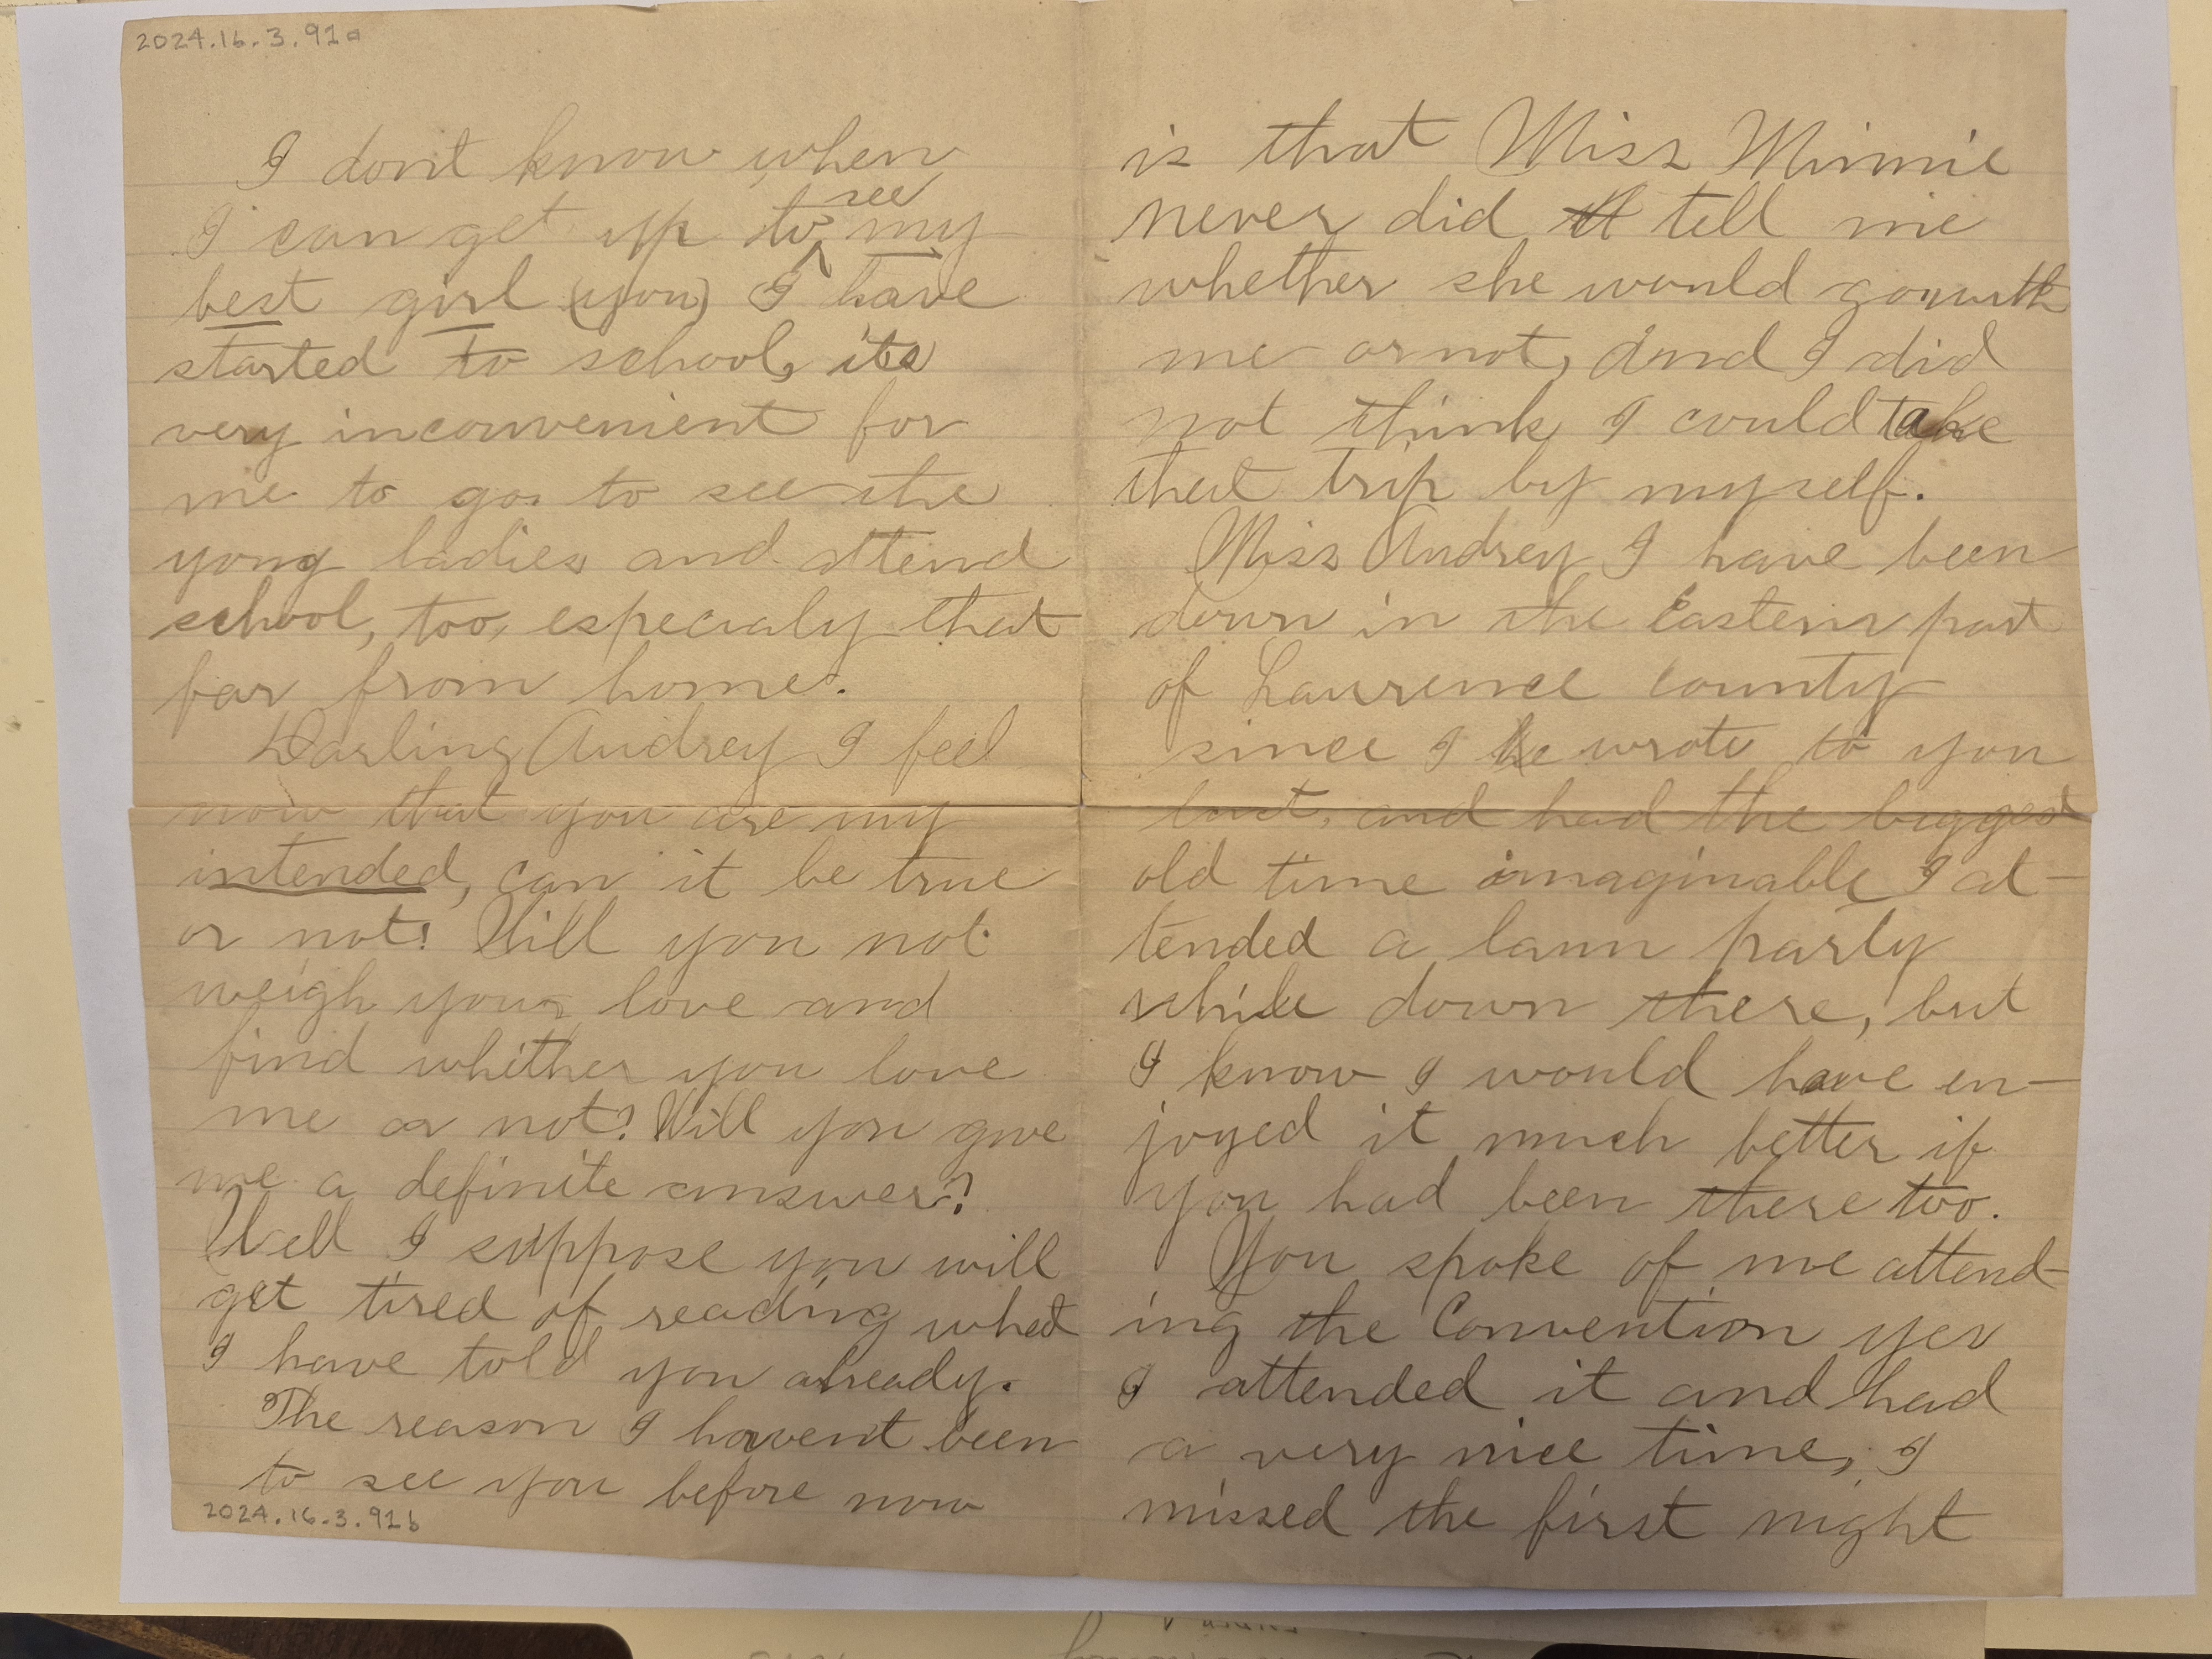 2024.16.3.91a
I dont know when
I can get up to see my
best girl (you) I have
started to school, its
very inconvenient for
me to go to see the
yong ladies and attend
school, too, especialy that
far from home.
Darling Audrey I feel
now that you are my
intended, can it be true
or not? Will you not
weigh your love and
find whither you love
me or not? Will you give
me a definite answer?
Well I suppose you will
get tired of reading what
I have told you already.
The reason I havent been
to see you before now
2024.16.3.91b
is that Miss Minnie
never did tell me
whether she would go with
me or not, and I did
not think I could take
that trip by myself.
Miss Audrey I have been
down in the Eastern part
of Laurence County
since I wrote to you
last, and had the biggest
old time imaginable I at-
tended a lawn party
while down there, but
I know I would have en-
joyed it much better if
you had been there too.
You spoke of me attend-
ing the Convention yes
I attended it and had
a very nice time, I
missed the first night